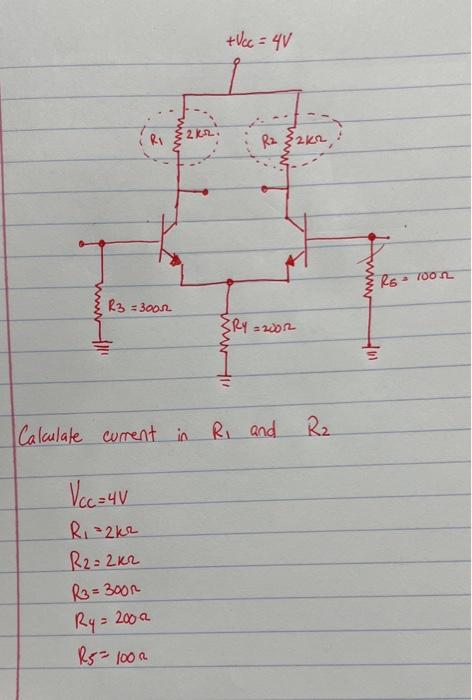 +Vcc = 4V
R1 2KΩ
R2 2KΩ
R3 = 300Ω
R4 = 200Ω
R5 = 100Ω
Calculate current in R1 and R2
Vcc=4V
R1=2kΩ
R2=2kΩ
R3=300Ω
R4= 200Ω
R5= 100Ω